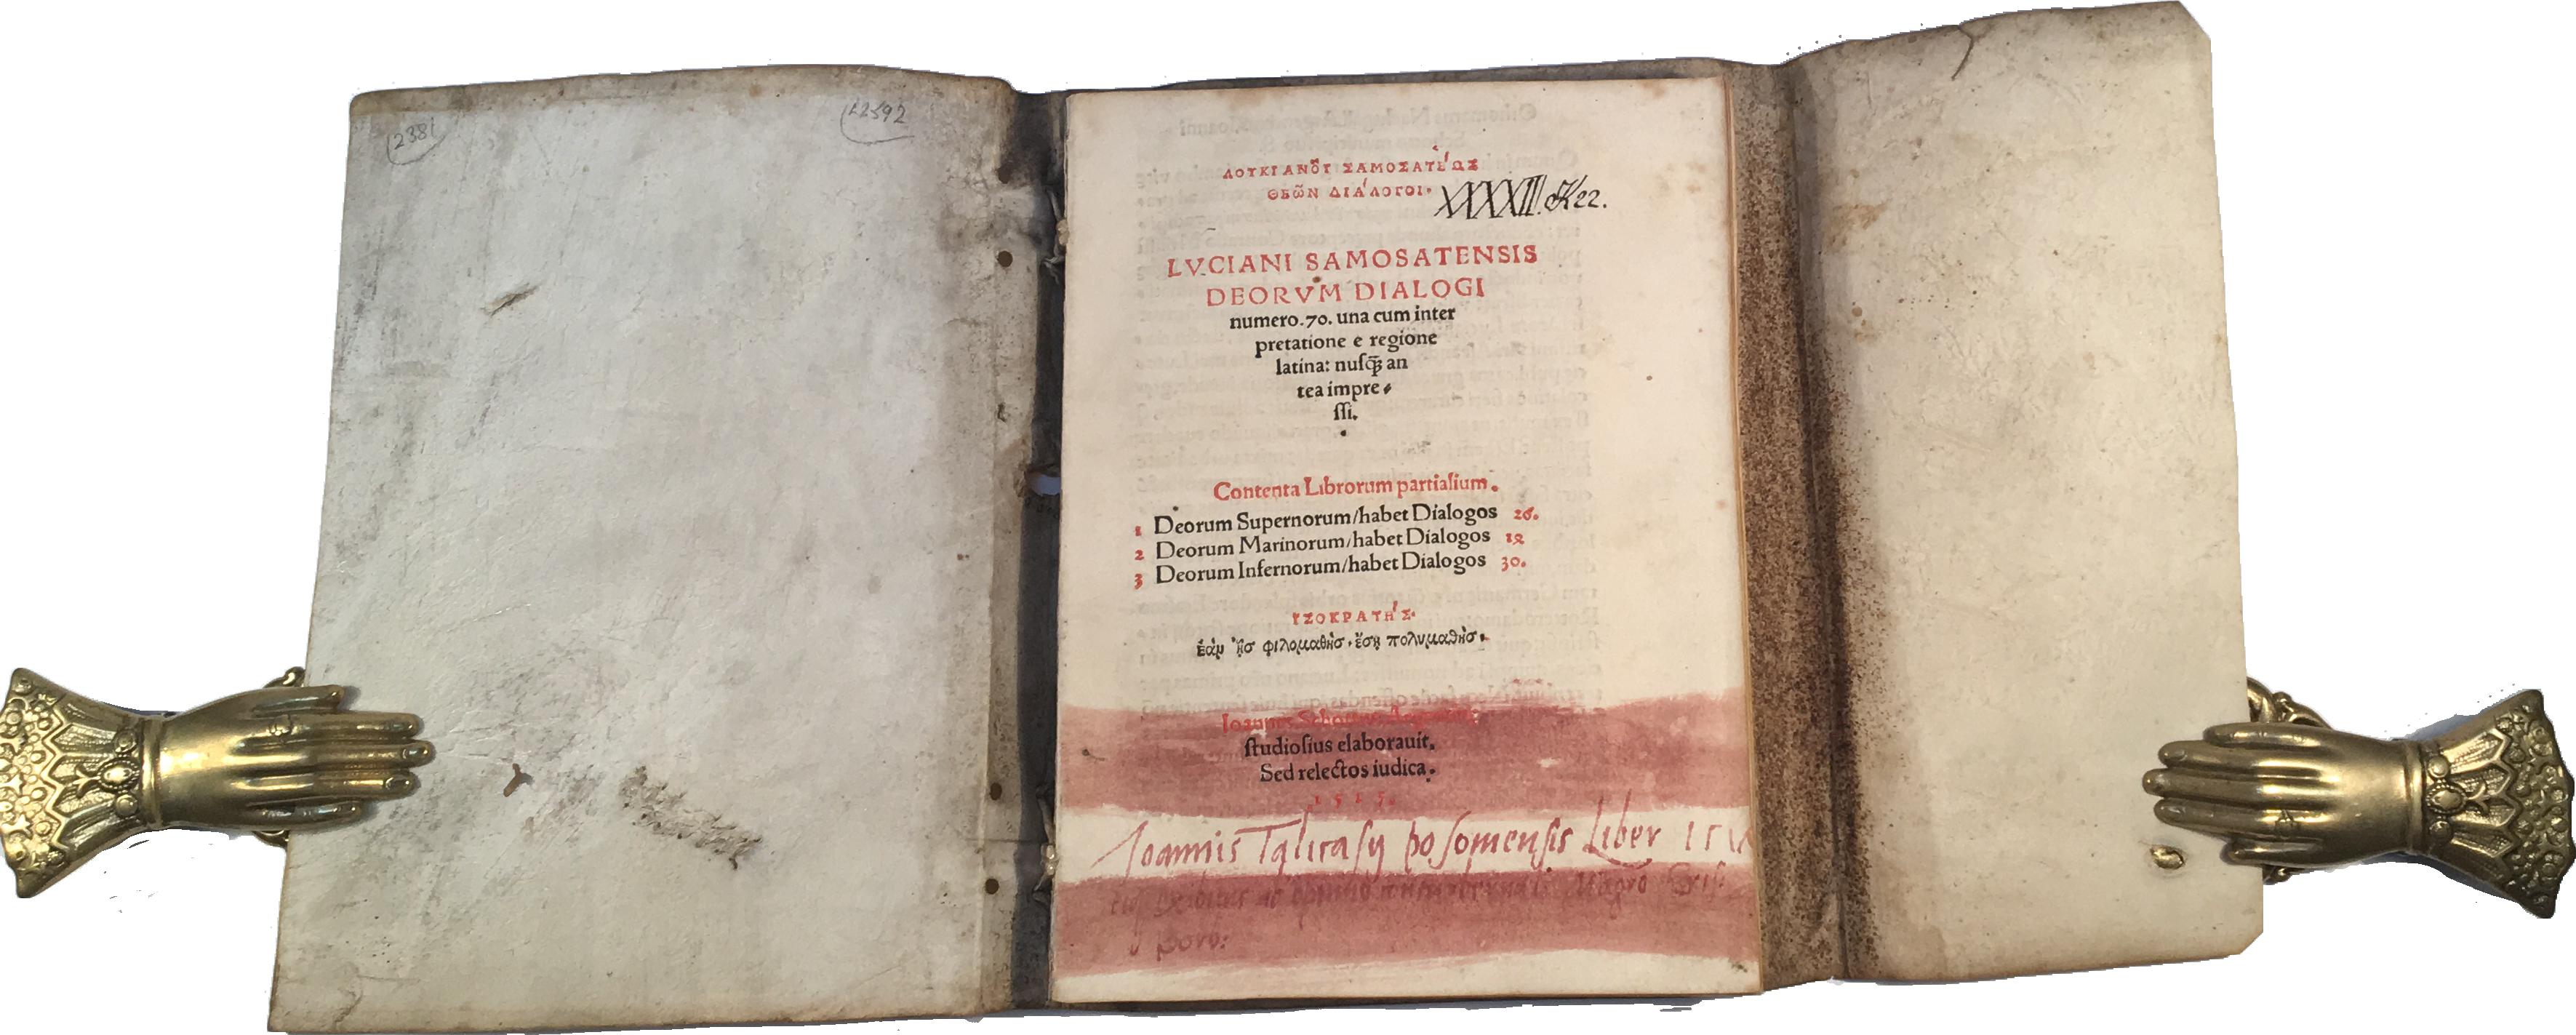 2381
L2592
ΛΟΥΚΙΑΝΟ͂Υ ΣΑΜΟΣΑΤΈΩΣ
ΘΕΩ͂Ν ΔΙΆΛΟΓΟΙ·
XXXXII. K22.
LVCIANI SAMOSATENSIS
DEORVM DIALOGI
numero.70. una cum inter
pretatione e regione
latina: nuſꝗ̃ an
tea impre⸗
ſſi.
Contenta Librorum partialium.
1 Deorum Supernorum/habet Dialogos 26.
2 Deorum Marinorum/habet Dialogos
3 Deorum Infernorum/habet Dialogos 30.
ἸΣΟΚΡΑΤΗ΄Σ·
ἐὰμ ᾖσ φιλομαθὴσ· ἔσῃ πολυμαθὴσ·
Ioannes Schottus
ſtudioſius elaborauit.
Sed relectos iudica.
1515.
Joannis Liber